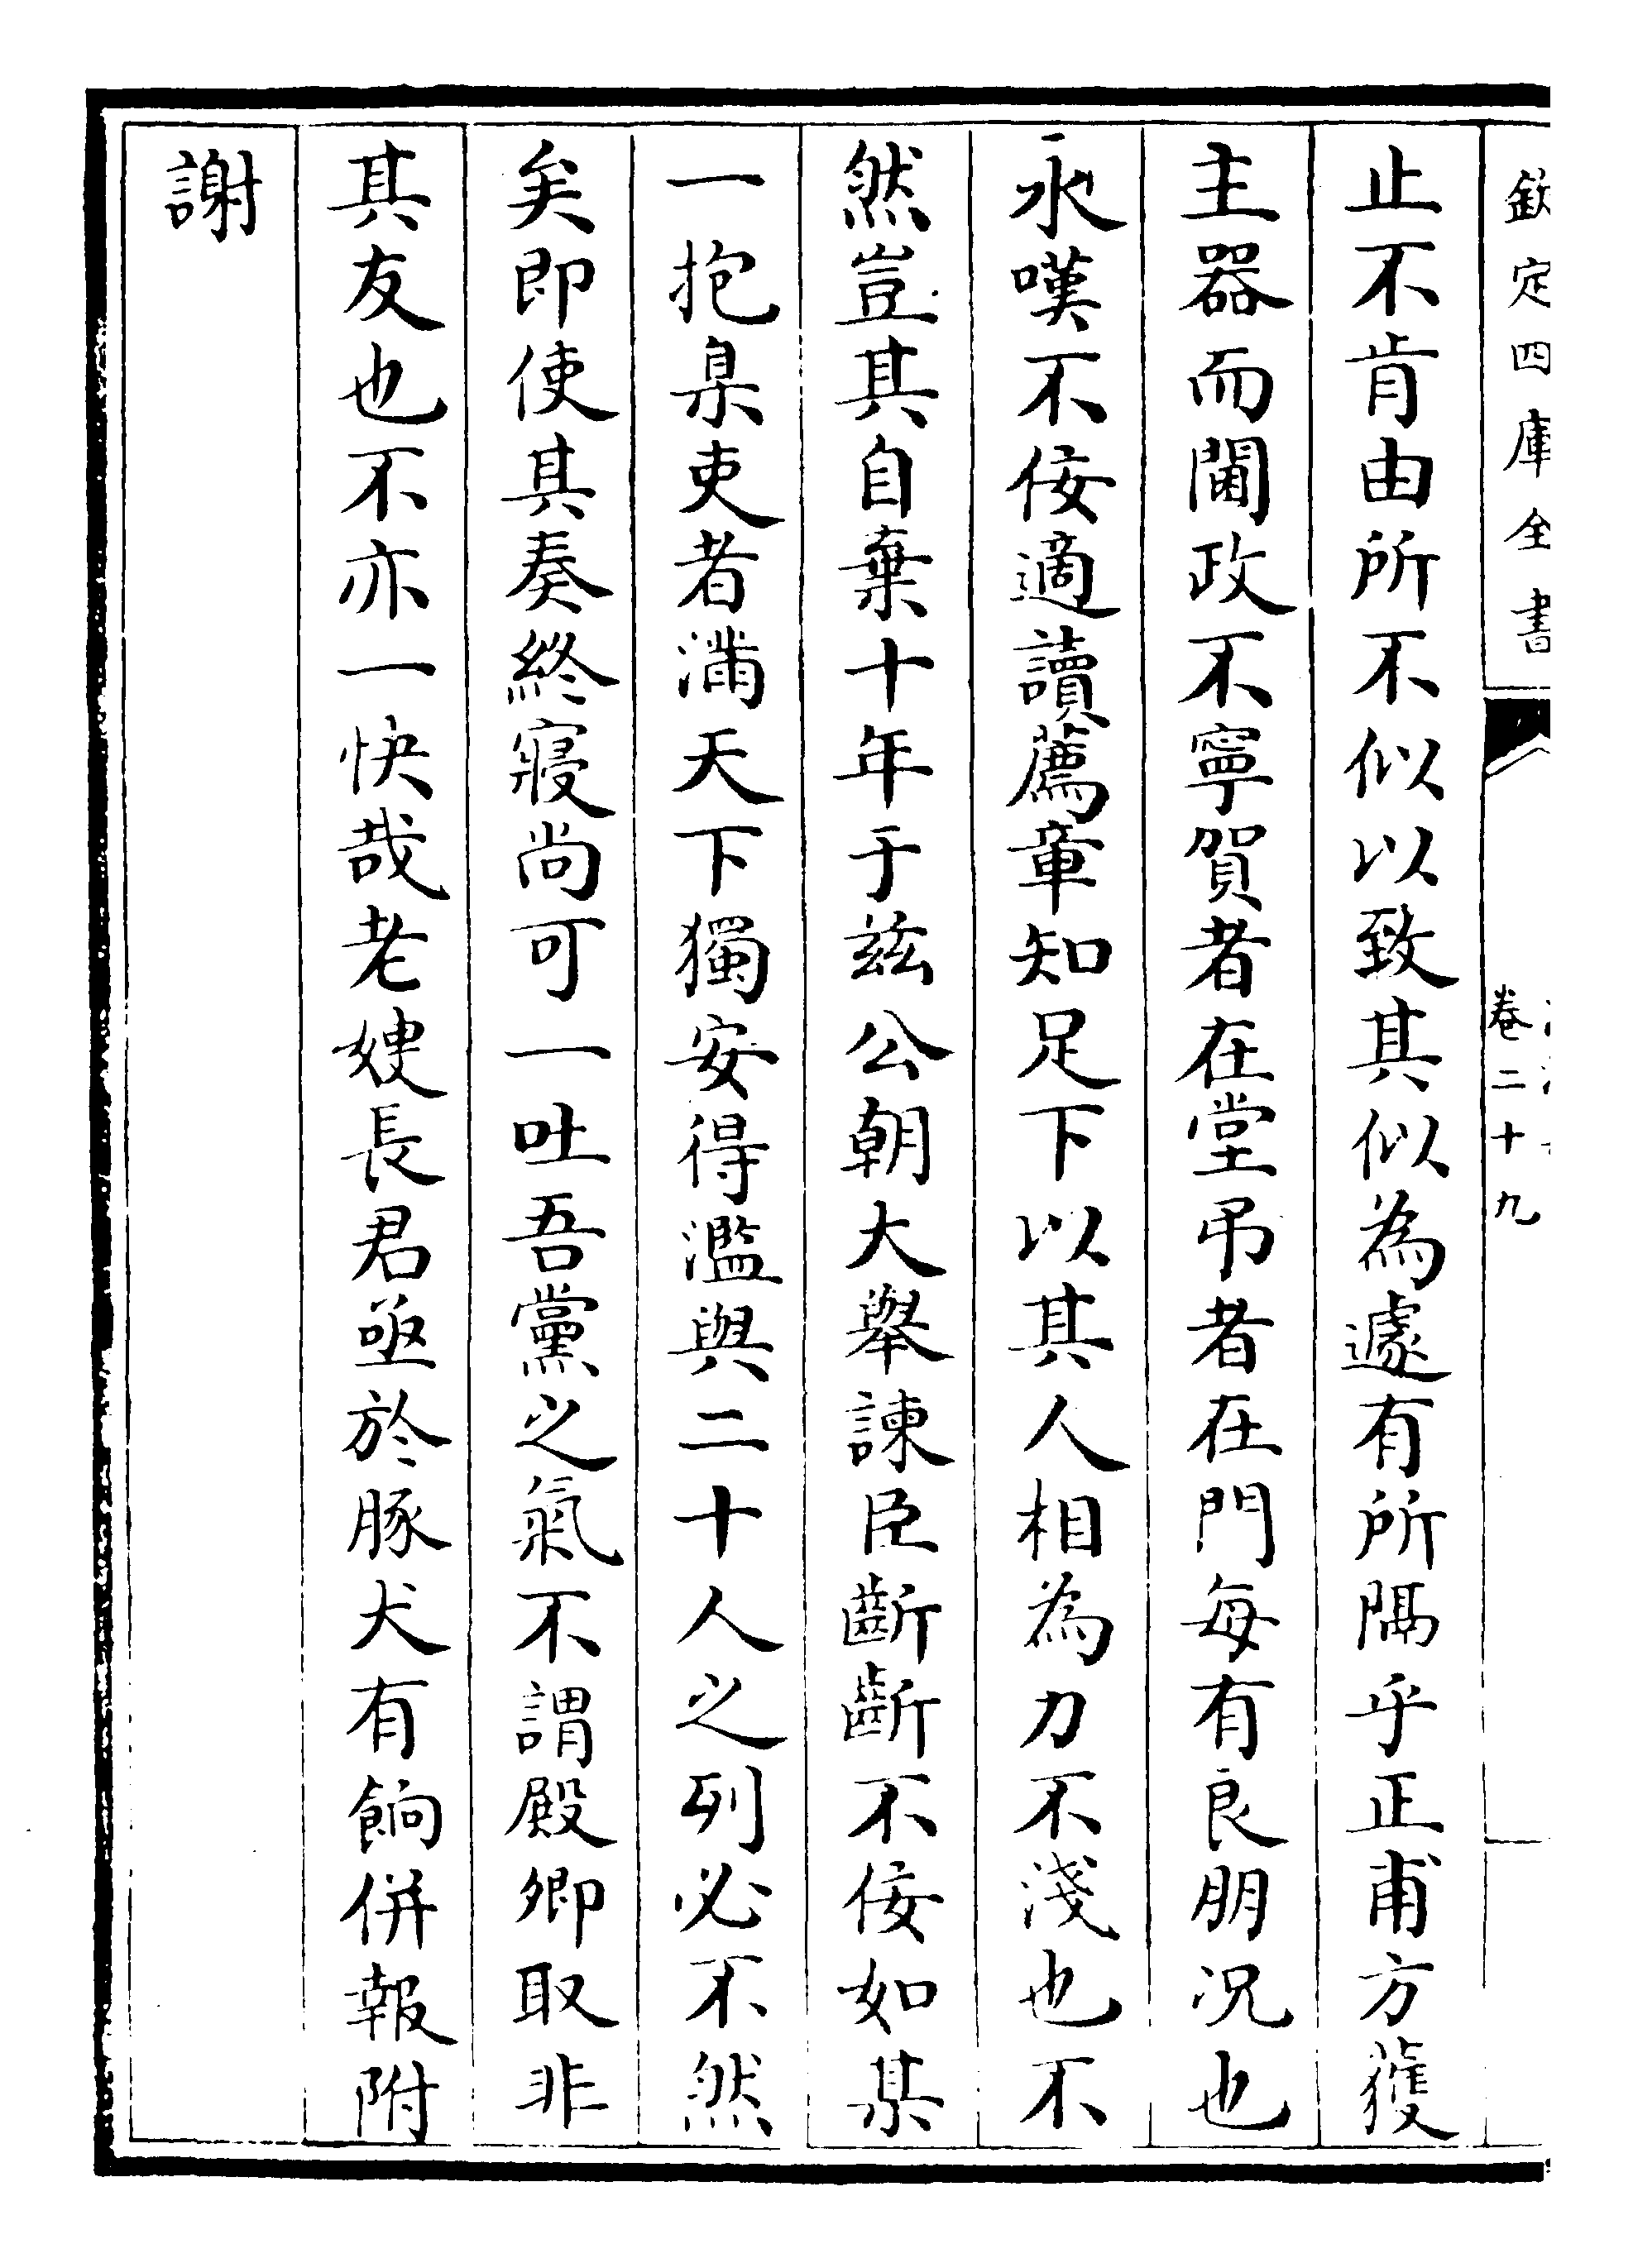 欽定四庫全書
卷二十九
止不肯由所不似以致其似為遽有所隔乎正甫方獲
主器而閫政不寧賀者在堂弔者在門每有良朋况也
永嘆不佞適讀薦章知足下以其人相為力不淺也不
然豈其自棄十年于兹公朝大舉諫臣齗齗不佞如某
一抱臬吏者滿天下獨安得濫與二十人之列必不然
矣即使其奏終寢尚可一吐吾黨之氣不謂殿卿取非
其友也不亦一快哉老嫂長君亟於豚犬有餉併報附
謝